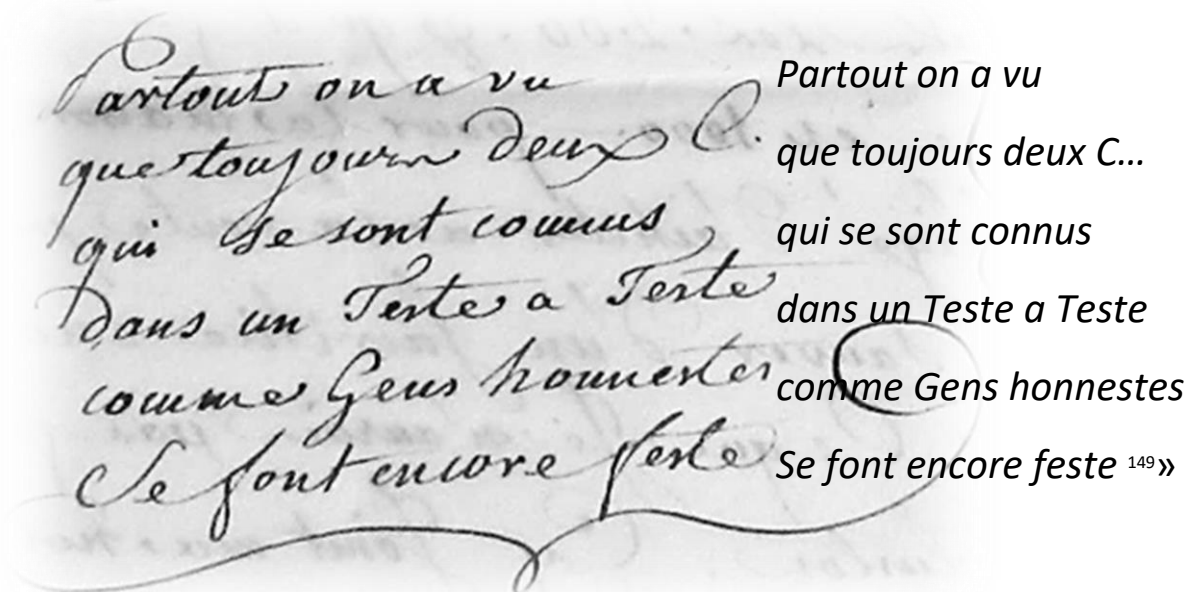 Partout on a vu
que toujours deux C.
qui se sont connus
dans un Teste a Teste
comme Gens honnestes
Se font encore feste
Partout on a vu
que toujours deux C…
qui se sont connus
dans un Teste a Teste
comme Gens honnestes
Se font encore feste 149»